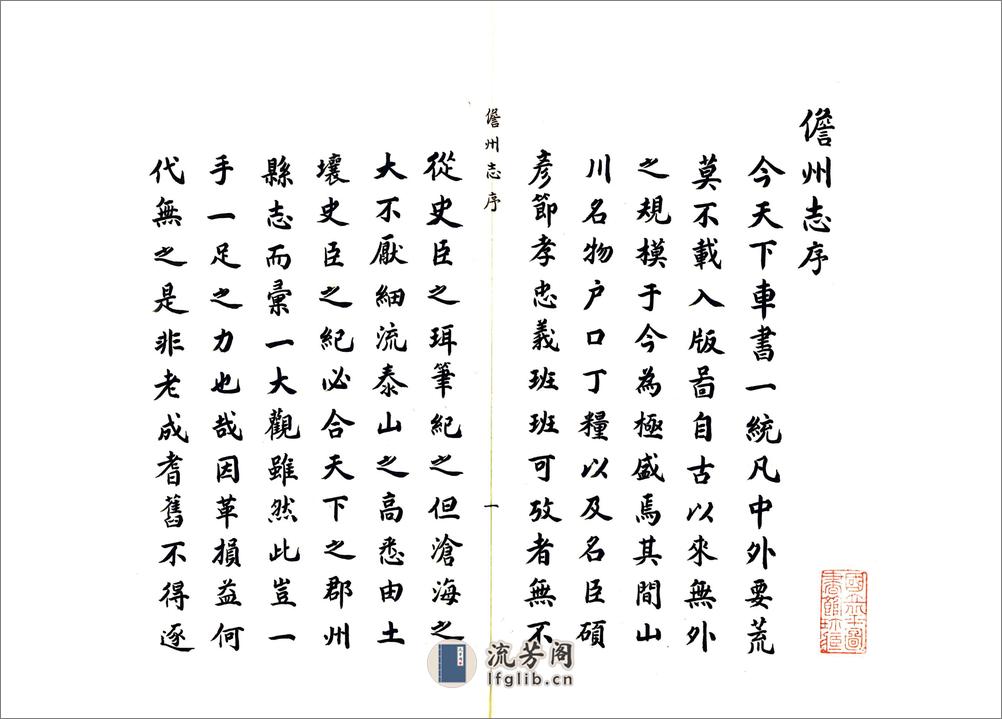 儋州志序
今天下車書一統凡中外要荒
莫不載入版啚自古以來無外
之規模于今為極盛焉其間山
川名物户口丁糧以及名臣碩
彥節孝忠義班班可攷者無不
儋州志序
一
從史臣之珥筆紀之但滄海之
大不厭細流泰山之高悉由土
壤史臣之紀必合天下之郡州
縣志而彙一大觀雖然此豈一
手一足之力也哉因革損益何
代無之是非老成耆舊不得逐
流芳阁
lfglib.cn